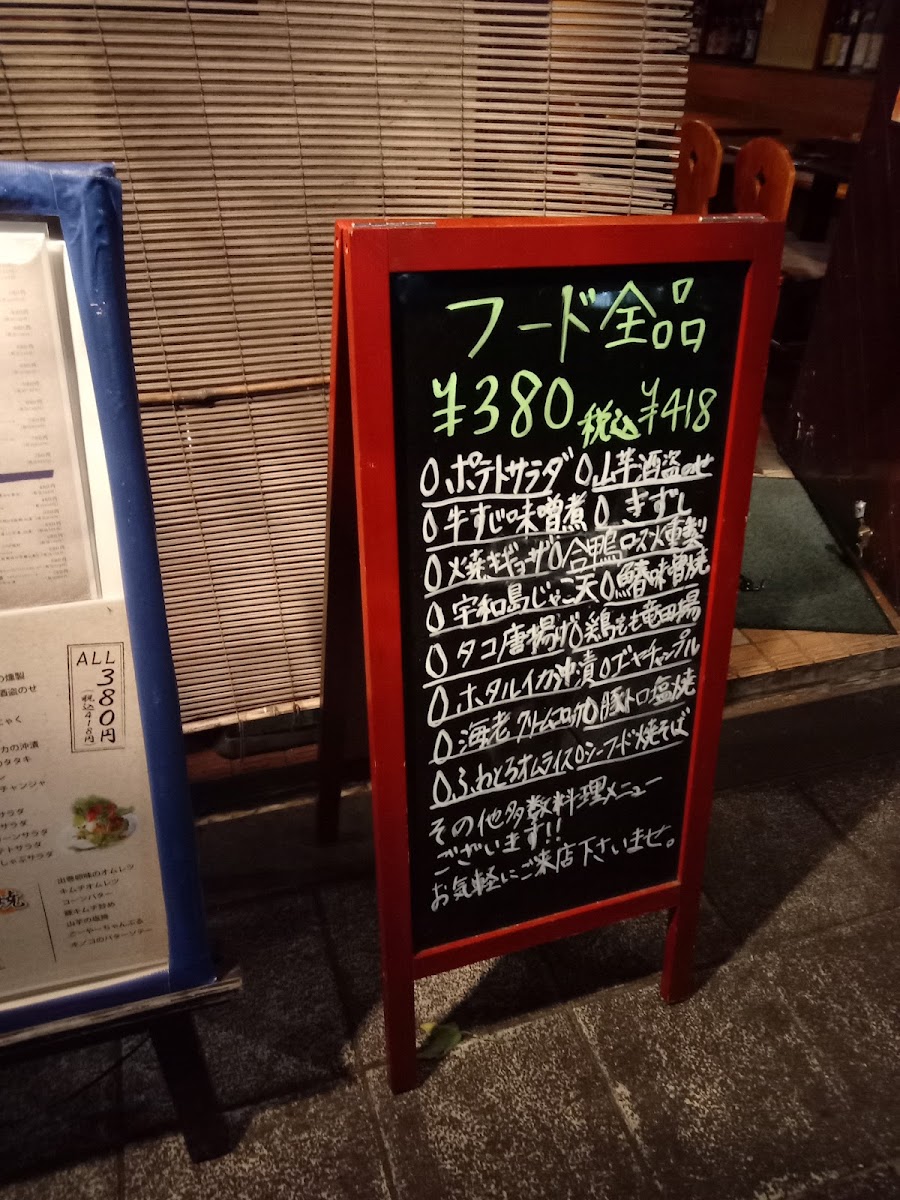 フード全品
¥380 税込¥418
0ポテトサラダ 0山芋酒盗のせ
0牛すじ味噌煮 0きずし
0焼きギョーザ0合鴨ロース燻製
0宇和島じゃこ天0鰆味噌焼
0タコ唐揚げ0鶏もも竜田揚
0ホタルイカ沖漬0ゴーヤチャンプル
0海老クリームコロッケ0豚トロ塩焼
0ふわとろオムライス0シーフード焼そば
その他多数料理メニュー
ございます!!
お気軽にご来店下さいませ。
ALL
380円
税込418円
の燻製
酒盗のせ
カの沖漬
チャンジャ
サラダ
サラダ
ーンサラダ
テトサラダ
しゃぶサラダ
出巻卵味のオムレツ
キムチオムレツ
コーンバター
豚キムチ炒め
山芋の塩焼
ごーやーちゃんぷる
キノコのバターソテー